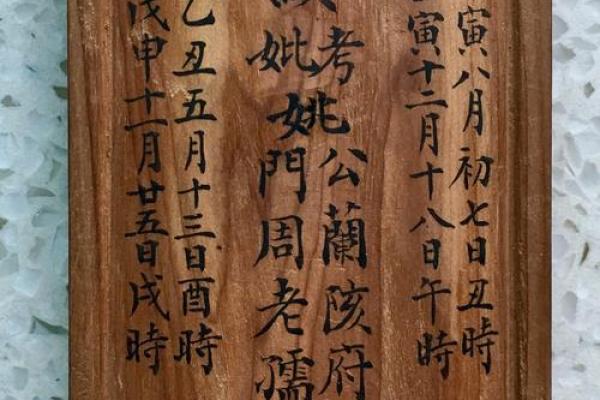 寅八月初七日丑時
寅十二月十八日午時
考公蘭陔府
妣姚門周老孺
乙丑五月十三日酉時
戊申十一月廿五日戌時